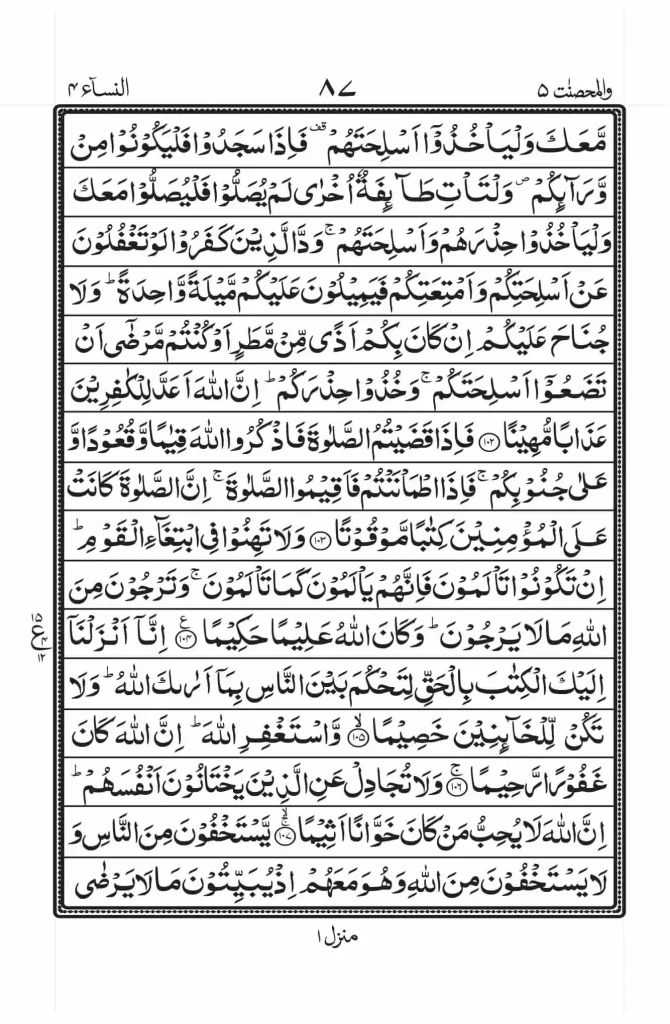 والمحصنت ۵
۸۷
النسآء ۴
مَّعَكَ وَلْيَاْخُذُوْۤا اَسْلِحَتَهُمْ ۫ فَاِذَا سَجَدُوْا فَلْيَكُوْنُوْا مِنْ
وَّرَآىِٕكُمْ ۪ وَلْتَاْتِ طَآىِٕفَةٌ اُخْرٰى لَمْ يُصَلُّوْا فَلْيُصَلُّوْا مَعَكَ
وَلْيَاْخُذُوْا حِذْرَهُمْ وَاَسْلِحَتَهُمْ ۚ وَدَّ الَّذِيْنَ كَفَرُوْا لَوْ تَغْفُلُوْنَ
عَنْ اَسْلِحَتِكُمْ وَاَمْتِعَتِكُمْ فَيَمِيْلُوْنَ عَلَيْكُمْ مَّيْلَةً وَّاحِدَةً ؕ وَلَا
جُنَاحَ عَلَيْكُمْ اِنْ كَانَ بِكُمْ اَذًى مِّنْ مَّطَرٍ اَوْ كُنْتُمْ مَّرْضٰۤى اَنْ
تَضَعُوْۤا اَسْلِحَتَكُمْ ۚ وَخُذُوْا حِذْرَكُمْ ؕ اِنَّ اللّٰهَ اَعَدَّ لِلْكٰفِرِيْنَ
عَذَابًا مُّهِيْنًا ۝۱۰۲ فَاِذَا قَضَيْتُمُ الصَّلٰوةَ فَاذْكُرُوا اللّٰهَ قِيٰمًا وَّقُعُوْدًا وَّ
عَلٰى جُنُوْبِكُمْ ۚ فَاِذَا اطْمَاْنَنْتُمْ فَاَقِيْمُوا الصَّلٰوةَ ۚ اِنَّ الصَّلٰوةَ كَانَتْ
عَلَى الْمُؤْمِنِيْنَ كِتٰبًا مَّوْقُوْتًا ۝۱۰۳ وَلَا تَهِنُوْا فِى ابْتِغَآءِ الْقَوْمِ ؕ
اِنْ تَكُوْنُوْا تَاْلَمُوْنَ فَاِنَّهُمْ يَاْلَمُوْنَ كَمَا تَاْلَمُوْنَ ۚ وَتَرْجُوْنَ مِنَ
اللّٰهِ مَا لَا يَرْجُوْنَ ؕ وَكَانَ اللّٰهُ عَلِيْمًا حَكِيْمًا ۝۱۰۴ ع اِنَّاۤ اَنْزَلْنَاۤ
۱۵
ع ۴
۱۲
اِلَيْكَ الْكِتٰبَ بِالْحَقِّ لِتَحْكُمَ بَيْنَ النَّاسِ بِمَاۤ اَرٰىكَ اللّٰهُ ؕ وَلَا
تَكُنْ لِّلْخَآىِٕنِيْنَ خَصِيْمًا ۝۱۰۵ ۙ وَّاسْتَغْفِرِ اللّٰهَ ؕ اِنَّ اللّٰهَ كَانَ
غَفُوْرًا رَّحِيْمًا ۝۱۰۶ ۚ وَلَا تُجَادِلْ عَنِ الَّذِيْنَ يَخْتَانُوْنَ اَنْفُسَهُمْ ؕ
اِنَّ اللّٰهَ لَا يُحِبُّ مَنْ كَانَ خَوَّانًا اَثِيْمًا ۝۱۰۷ ۚۙ يَّسْتَخْفُوْنَ مِنَ النَّاسِ وَ
لَا يَسْتَخْفُوْنَ مِنَ اللّٰهِ وَهُوَ مَعَهُمْ اِذْ يُبَيِّتُوْنَ مَا لَا يَرْضٰى
منزل ۱